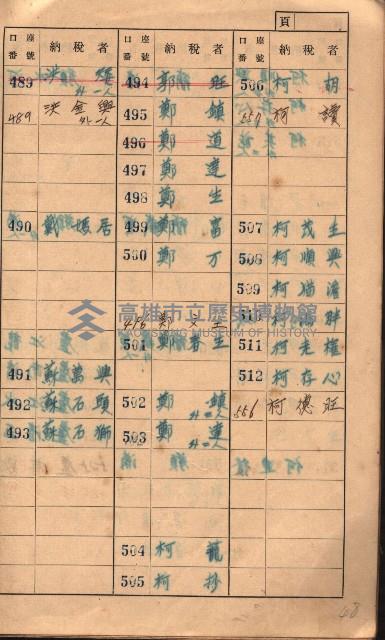 頁
口座番號 納稅者
489 洪 雄 外一人
489 洪金興 外一人
490 戴媽居
491 蘇萬興
492 蘇石頭
493 蘇石獅
口座番號 納稅者
494 郭 旺
495 鄭 鎮
496 鄭 道
497 鄭 達
498 鄭 生
499 鄭 富
500 鄭 万
496 鄭 文 生
501 鄭春生
502 鄭 鎮 外二人
503 鄭 達 外二人
504 柯 龍
505 柯 抄
口座番號 納稅者
506 柯 胡
557 柯 讚
507 柯茂生
508 柯順興
509 柯
510 柯 胖
511 柯老權
512 柯存心
556 柯德旺
高雄市立歷史博物館
KAOHSIUNG MUSEUM OF HISTORY
48